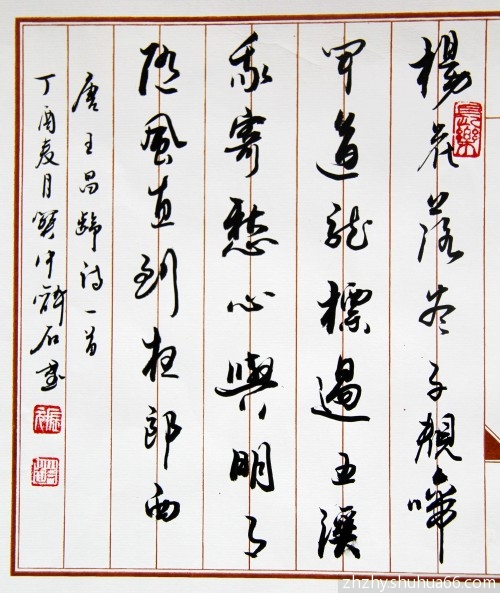 長樂
楊花落尽子規啼
聞道龍標過五溪
我寄愁心與明月
随風直到夜郎西
唐王昌齡诗一首
丁酉夏月 石書
zhzhy.shuhua66.com